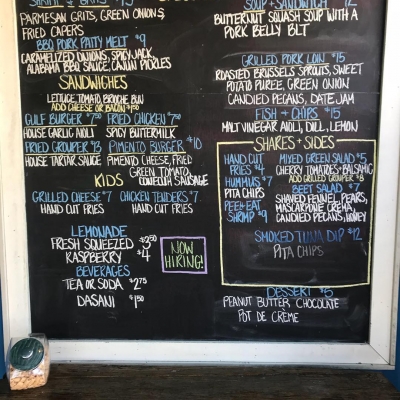 SHRIMP & GRITS
PARMESAN GRITS, GREEN ONIONS,
FRIED CAPERS
BBQ PORK PATTY MELT $9
CARAMELIZED ONIONS, SPICY JACK,
ALABAMA BBQ SAUCE, CAJUN PICKLES
SANDWICHES
LETTUCE, TOMATO, BRIOCHE BUN
ADD CHEESE OR BACON $1.50
GULF BURGER $7.50 FRIED CHICKEN $7.50
HOUSE GARLIC AIOLI SPICY BUTTERMILK
FRIED GROUPER $13 PIMENTO BURGER $10
HOUSE TARTAR SAUCE PIMENTO CHEESE, FRIED
GREEN TOMATO,
CONECUH SAUSAGE
KIDS
GRILLED CHEESE $7 CHICKEN TENDERS $7
HAND CUT FRIES HAND CUT FRIES
LEMONADE
FRESH SQUEEZED $3.50
RASPBERRY $4
BEVERAGES
TEA OR SODA $2.75
DASANI $1.50
NOW
HIRING!
SOUP + SANDWICH $12
BUTTERNUT SQUASH SOUP WITH A
PORK BELLY BLT
GRILLED PORK LOIN $15
ROASTED BRUSSELS SPROUTS, SWEET
POTATO PUREE, GREEN ONION
CANDIED PECANS, DATE JAM
FISH + CHIPS $15
MALT VINEGAR AIOLI, DILL, LEMON
SHARES + SIDES
HAND CUT
FRIES $4
HUMMUS $7
PITA CHIPS
PEEL+EAT
SHRIMP $9
MIXED GREEN SALAD $5
CHERRY TOMATOES + BALSAMIC
ADD GRILLED GROUPER $8
BEET SALAD $7
SHAVED FENNEL, PEARS,
MASCARPONE CREMA,
CANDIED PECANS, HONEY
SMOKED TUNA DIP $12
PITA CHIPS
DESSERT $5
PEANUT BUTTER CHOCOLATE
POT DE CRÈME